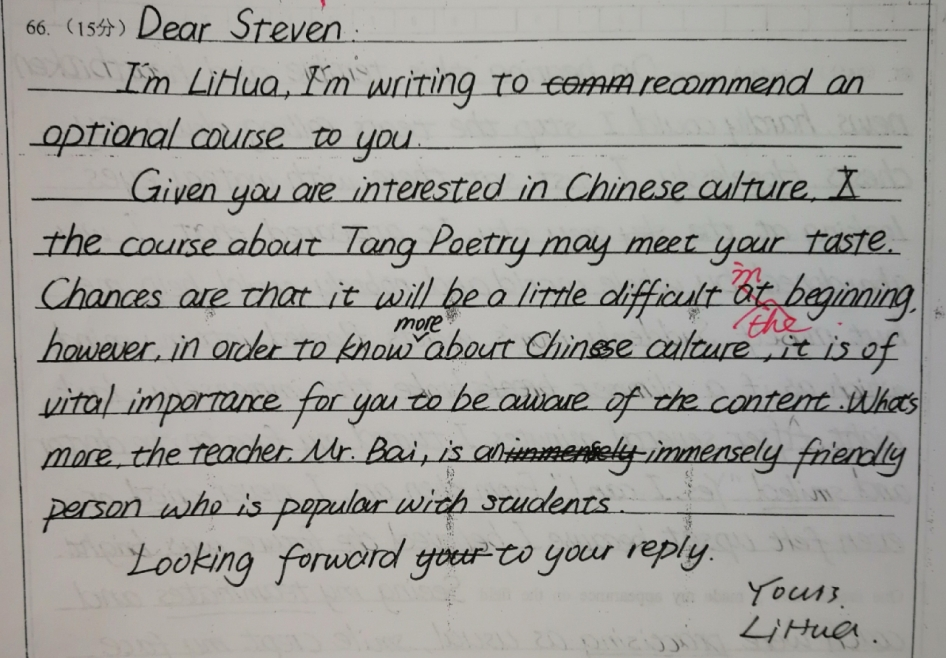 66. (15分) Dear Steven:
I'm LiHua, I'm writing to comm recommend an
optional course to you.
Given you are interested in Chinese culture, I
the course about Tang Poetry may meet your taste.
Chances are that it will be a little difficult at beginning,
in
the
more
however, in order to know about Chinese culture, it is of
vital importance for you to be aware of the content. What's
more, the teacher. Mr. Bai, is an immensely immensely friendly
person who is popular with students.
Looking forward your to your reply.
Yours.
LiHua.